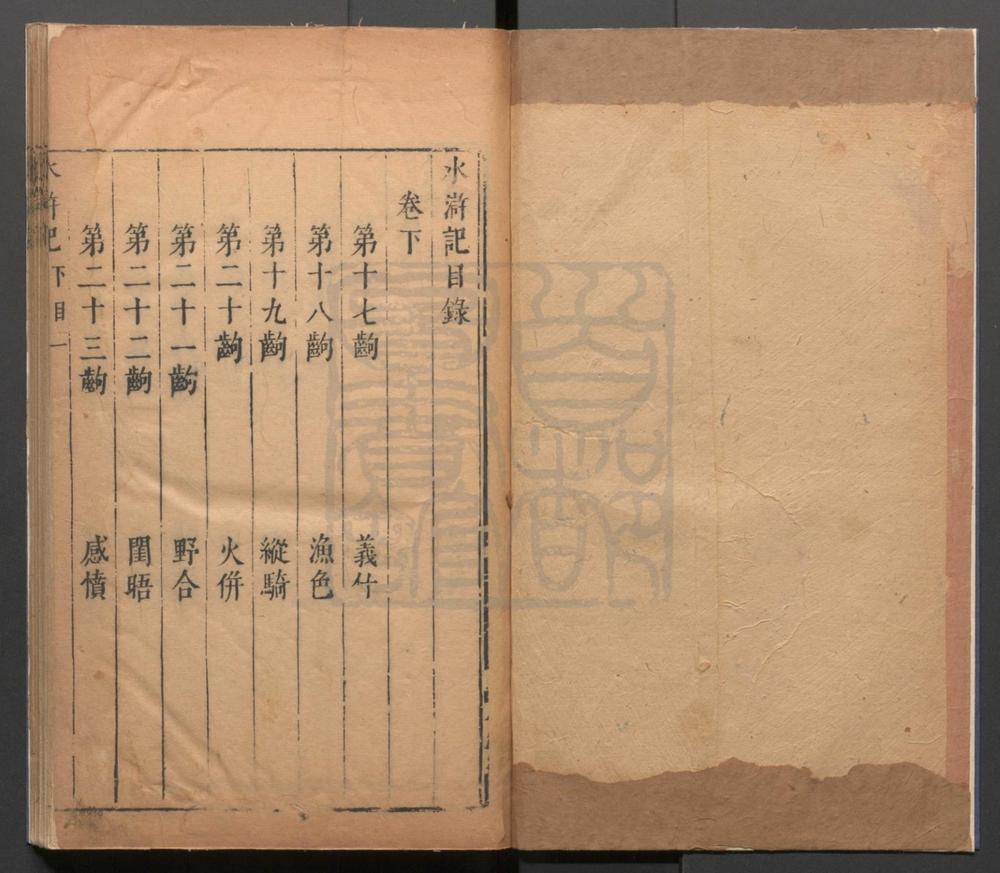 水滸記目錄
卷下
第十七齣 義什
第十八齣 漁色
第十九齣 縱騎
第二十齣 火併
第二十一齣 野合
第二十二齣 閨晤
第二十三齣 感憤
水滸記 下目 一